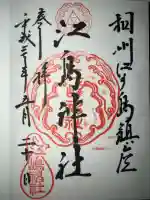 相州江の島鎮座
江島神社
奉拝
平成三十年五月二十日